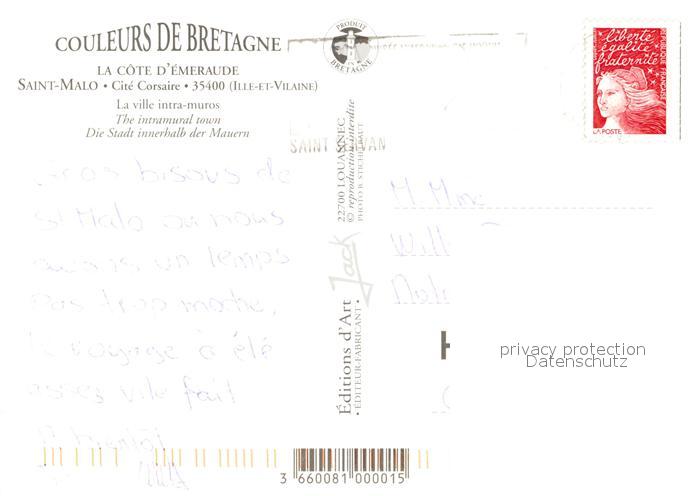 COULEURS DE BRETAGNE
PRODUIT EN BRETAGNE
LA CÔTE D'ÉMERAUDE
SAINT-MALO • Cité Corsaire • 35400 (ILLE-ET-VILAINE)
La ville intra-muros
The intramural town
Die Stadt innerhalb der Mauern
SAINT SERVAN
liberté
égalité
fraternité
RÉPUBLIQUE FRANÇAISE
LA POSTE
Gros bisous de
St Malo ou nous
avons un temps
pas trop moche,
le voyage a été
assez vite fait
A bientôt
22700 LOUANNEC
© reproduction interdite
PHOTO B. STICHELBAUT
Jack
Éditions d'Art
• ÉDITEUR-FABRICANT •
M. Mme
Will
H
privacy protection
Datenschutz
3 660081 000015